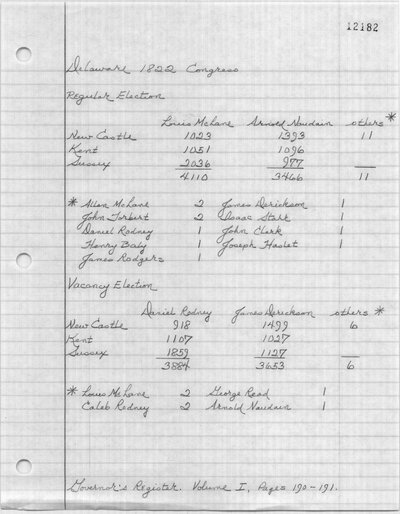 12182
Delaware 1822 Congress
Regular Election
Louis McLane Arnold Naudain others *
New Castle 1023 1393 11
Kent 1051 1096
Sussex 2036 977
4110 3466 11
* Allen McLane 2 James Derickson 1
John Torbert 2 Isaac Starr 1
Daniel Rodney 1 John Clerk 1
Henry Baby 1 Joseph Haslet 1
James Rodgers 1
Vacancy Election
Daniel Rodney James Derickson others *
New Castle 918 1499 6
Kent 1107 1027
Sussex 1859 1127
3884 3653 6
* Louis McLane 2 George Read 1
Caleb Rodney 2 Arnold Naudain 1
Governor's Register. Volume I, Pages 190-191.